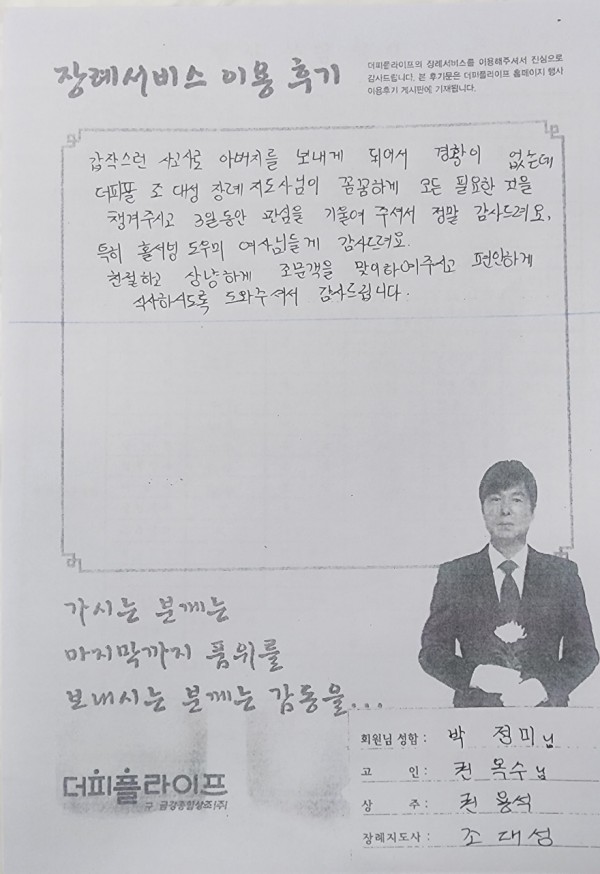 장례서비스 이용 후기
더피플라이프의 장례서비스를 이용해주셔서 진심으로
감사드립니다. 본 후기문은 더피플라이프 홈페이지 행사
이용후기 게시판에 기재됩니다.
갑작스런 사고사로 아버지를 보내게 되어서 경황이 없는데
더피플 조대성 장례지도사님이 꼼꼼하게 모든 필요한 것을
챙겨주시고 3일동안 관심을 기울여 주셔서 정말 감사드려요,
특히 홀서빙 도우미 여사님들께 감사드려요.
친절하고 상냥하게 조문객을 맞이하여주시고 편안하게
식사하시도록 도와주셔서 감사드립니다.
가시는 분께는
마지막까지 품위를
보내시는 분께는 감동을...
더피플라이프
구 금강종합상조(주)
회원님 성함 : 박 전미님
고 인 : 권 옥수님
상 주 : 권 용석
장례지도사 : 조 대성